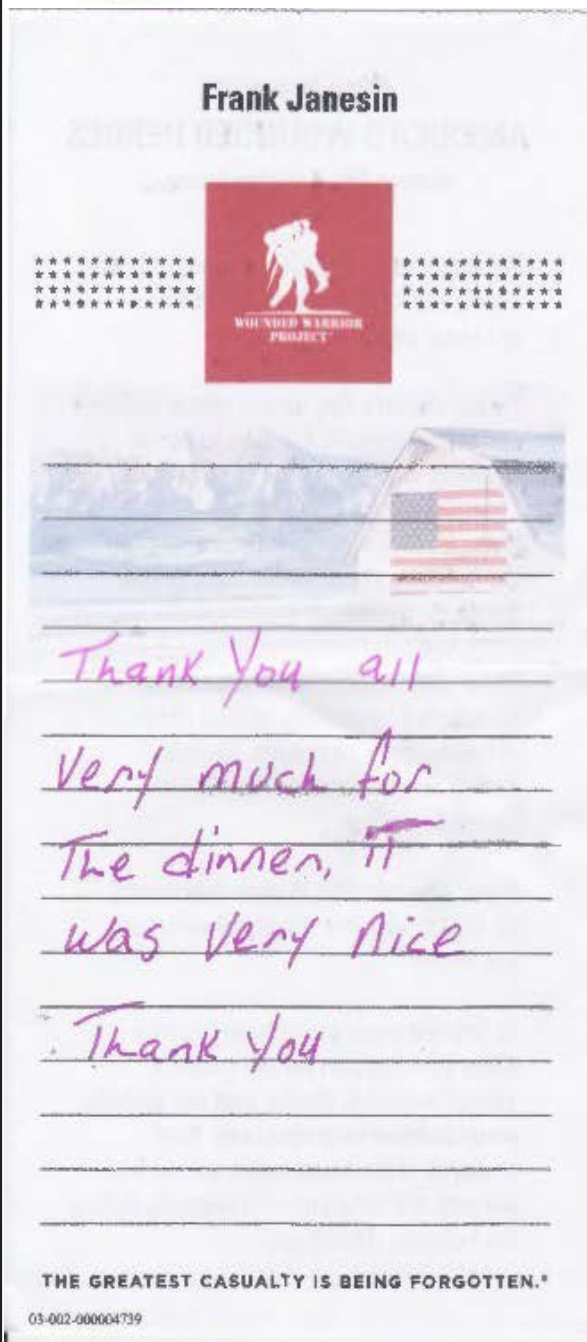 Frank Janesin
WOUNDED WARRIOR
PROJECT
Thank You all
Very much for
The dinner, IT
was Very Nice
Thank You
THE GREATEST CASUALTY IS BEING FORGOTTEN.®
03-002-000004739